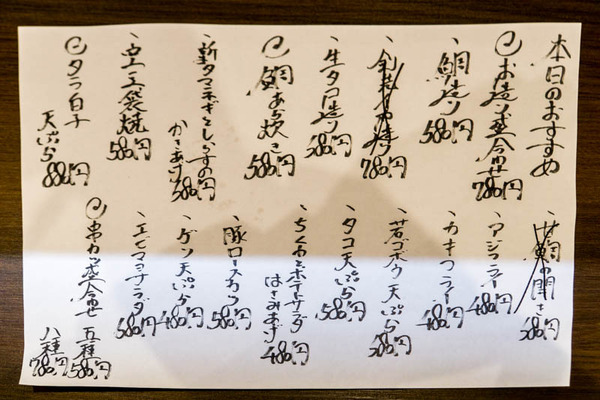 本日のおすすめ
お造り盛合わせ 780円
鯛造り 580円
780円
生タコ造り 580円
鯛あら炊き 580円
新タマネギとしらすの
かきあげ 580円
袋焼 580円
タラ白子
天ぷら 880円
の開き 580円
アジフライ 480円
カキフライ 480円
若ゴボウ天ぷら 580円
タコ天ぷら 580円
ちくわとポテトサラダ
はさみあげ 480円
豚ロースカツ 580円
ゲソ天ぷら 480円
エビマヨサラダ 580円
串カツ盛合せ 五種 580円
八種 780円